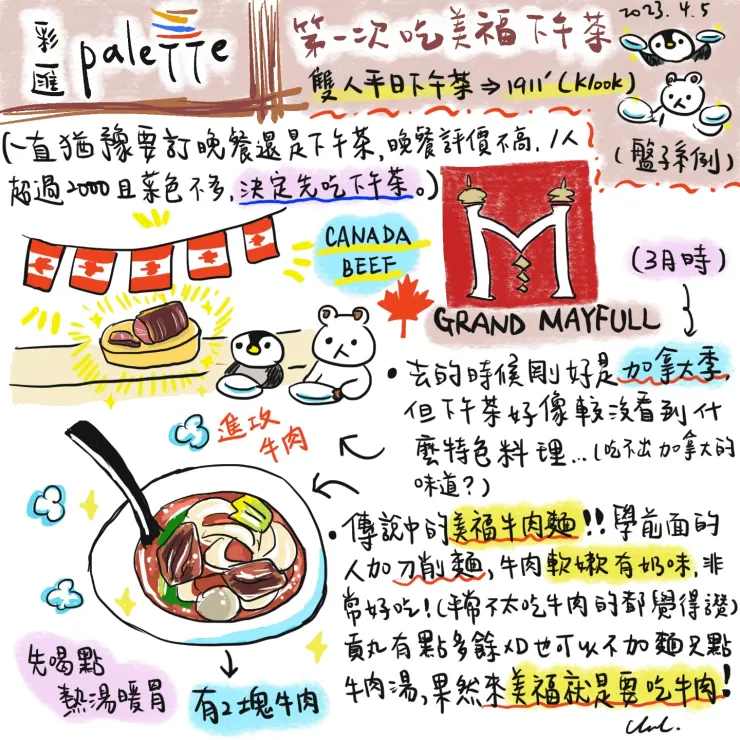 彩匯 palette
第一次吃美福下午茶
2023.4.5
雙人平日下午茶⇒1911'(Klook)
(盤子系例)
(一直猶豫要訂晚餐還是下午茶,晚餐評價不高,1人
超過2000且菜色不多,決定先吃下午茶。)
CANADA
BEEF
M
GRAND MAYFULL
(3月時)
•去的時候剛好是加拿大季,
但下午茶好像較沒看到什
麼特色料理...(吃不出加拿大的
味道?)
進攻
牛肉
•傳說中的美福牛肉麵!!學前面的
人加刀削麵,牛肉軟嫰有奶味,非
常好吃!(平常不太吃牛肉的都覺得讚)
貢丸有點多餘XD也可以不加麵只點
牛肉湯,果然來美福就是要吃牛肉!
先喝點
熱湯暖胃
有2塊牛肉